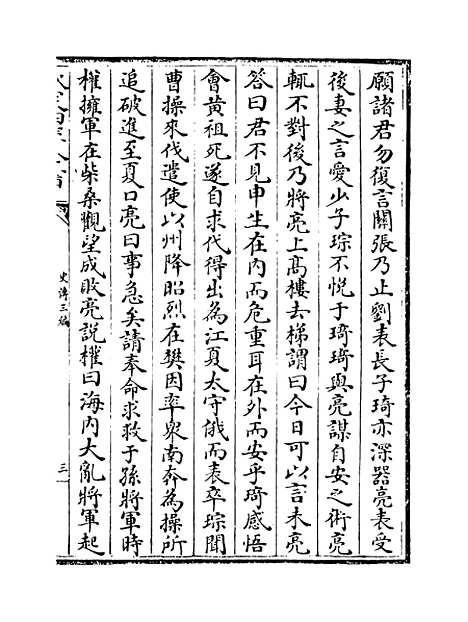 願諸君勿復言關張乃止劉表長子琦亦深器亮表受
後妻之言愛少子琮不悅于琦琦與亮謀自安之術亮
輒不對後乃將亮上髙樓去梯謂曰今日可以言未亮
答曰君不見申生在內而危重耳在外而安乎琦感悟
會黄祖死遂自求代得出為江夏太守俄而表卒琮聞
曹操來伐遣使以州降昭烈在樊因率衆南奔為操所
追破進至夏口亮曰事急矣請奉命求救于孫將軍時
權擁軍在柴桑觀望成敗亮說權曰海內大亂將軍起
史傳三編
三